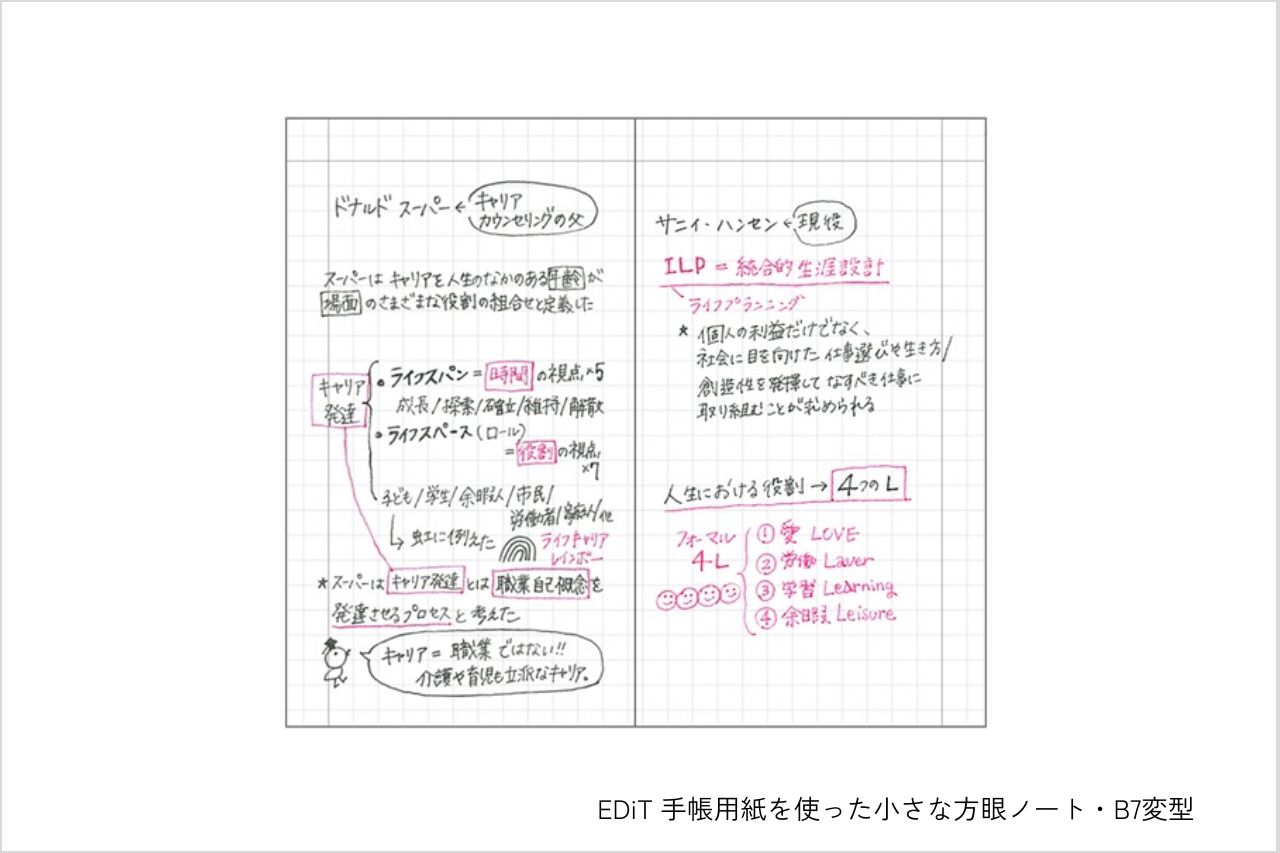 ドナルド スーパー ← キャリア
カウンセリングの父
スーパーは キャリアを人生のなかのある年齢が
場面のさまざまな役割の組合せと定義した
キャリア
発達
• ライフスパン = 時間 の視点 ×5
成長/探索/確立/維持/解散
• ライフスペース (ロール)
= 役割 の視点
×7
子ども/学生/余暇人/市民/
労働者/家庭人/他
↳ 虹に例えた
ライフキャリア
レインボー
* スーパーは キャリア発達 とは 職業自己概念 を
発達させるプロセス と 考えた
キャリア = 職業 ではない!!
介護や育児も立派なキャリア。
サニィ・ハンセン ← 現役
ILP = 統合的生涯設計
ライフプランニング
* 個人の利益だけでなく、
社会に目を向けた 仕事選びや生き方/
創造性を発揮して なすべき仕事に
取り組むことが求められる
人生における役割 → 4つのL
フォーマル
4-L
① 愛 LOVE
② 労働 Laver
③ 学習 Learning
④ 余暇 Leisure
EDiT 手帳用紙を使った小さな方眼ノート・B7変型